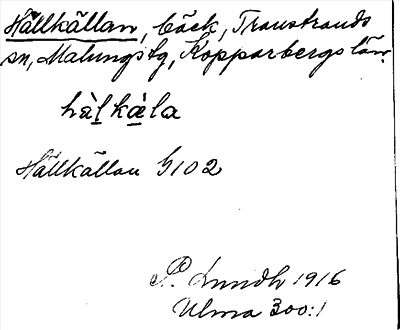 Hällkällan, bäck, Transtrands
sn, Malungs tg, Kopparbergs län.
hàl̠kæ̀la
Hällkällan G102
P. Lundh 1916
Ulma 300:1